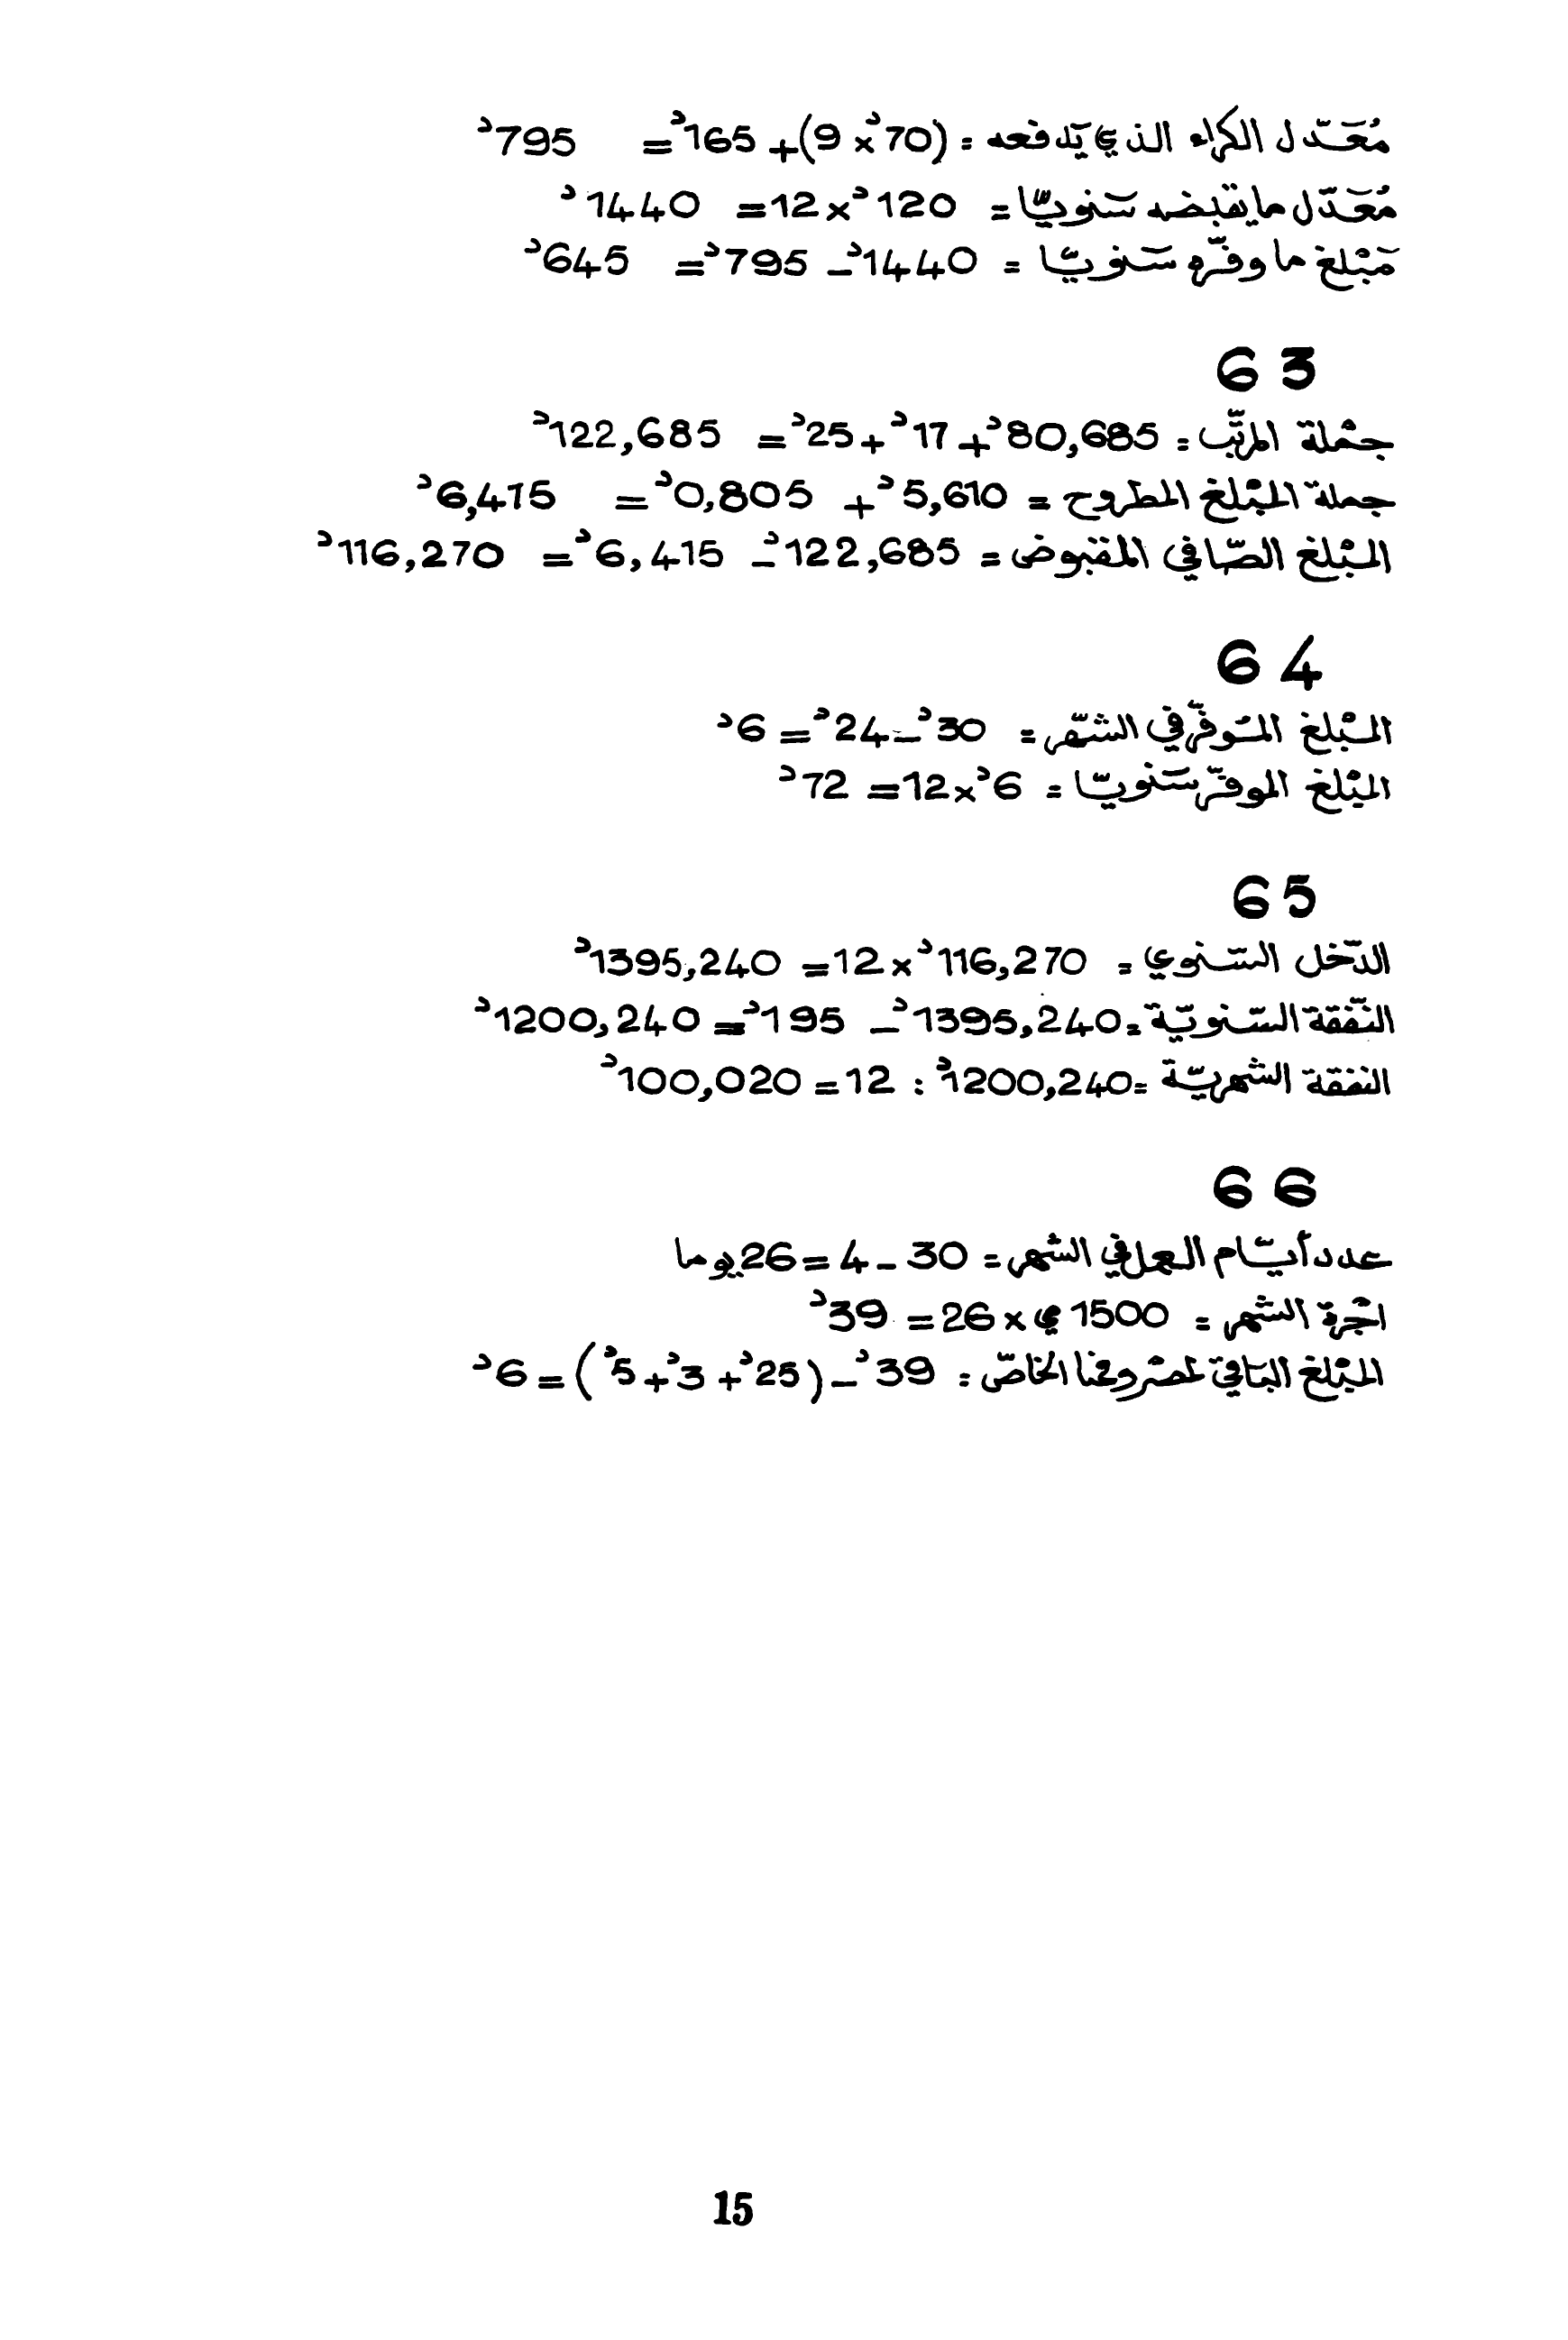 مُعَدّل الكراء الذي يَدفعه = (70د × 9) + 165د = 795د
مُعَدّل ما يقبضه سَنويّا = 120د × 12 = 1440د
مَبْلغ ما وفّره سَنويّا = 1440د – 795د = 645د
63
جمْلة المرتّب = 80,685د + 17د + 25د = 122,685د
جملة المبْلغ المطروح = 5,610د + 0,805د = 6,415د
المبْلغ الصّافي المقبوض = 122,685د – 6,415د = 116,270د
64
المبْلغ المتوفّر في الشّهر = 30د – 24د = 6د
المبْلغ الموفّر سَنويّا = 6د × 12 = 72د
65
الدّخل السّنوي = 116,270د × 12 = 1395,240د
النّفقة السّنويّة = 1395,240د – 195د = 1200,240د
النفقة الشهريّة = 1200,240د : 12 = 100,020د
66
عدد أيّام العمل في الشهر = 30 – 4 = 26 يوما
اجْرة الشّهر = 1500 ي × 26 = 39د
المبْلغ الباقي لمصْروفنا الخاصّ = 39د – (25د + 3د + 5د) = 6د
15